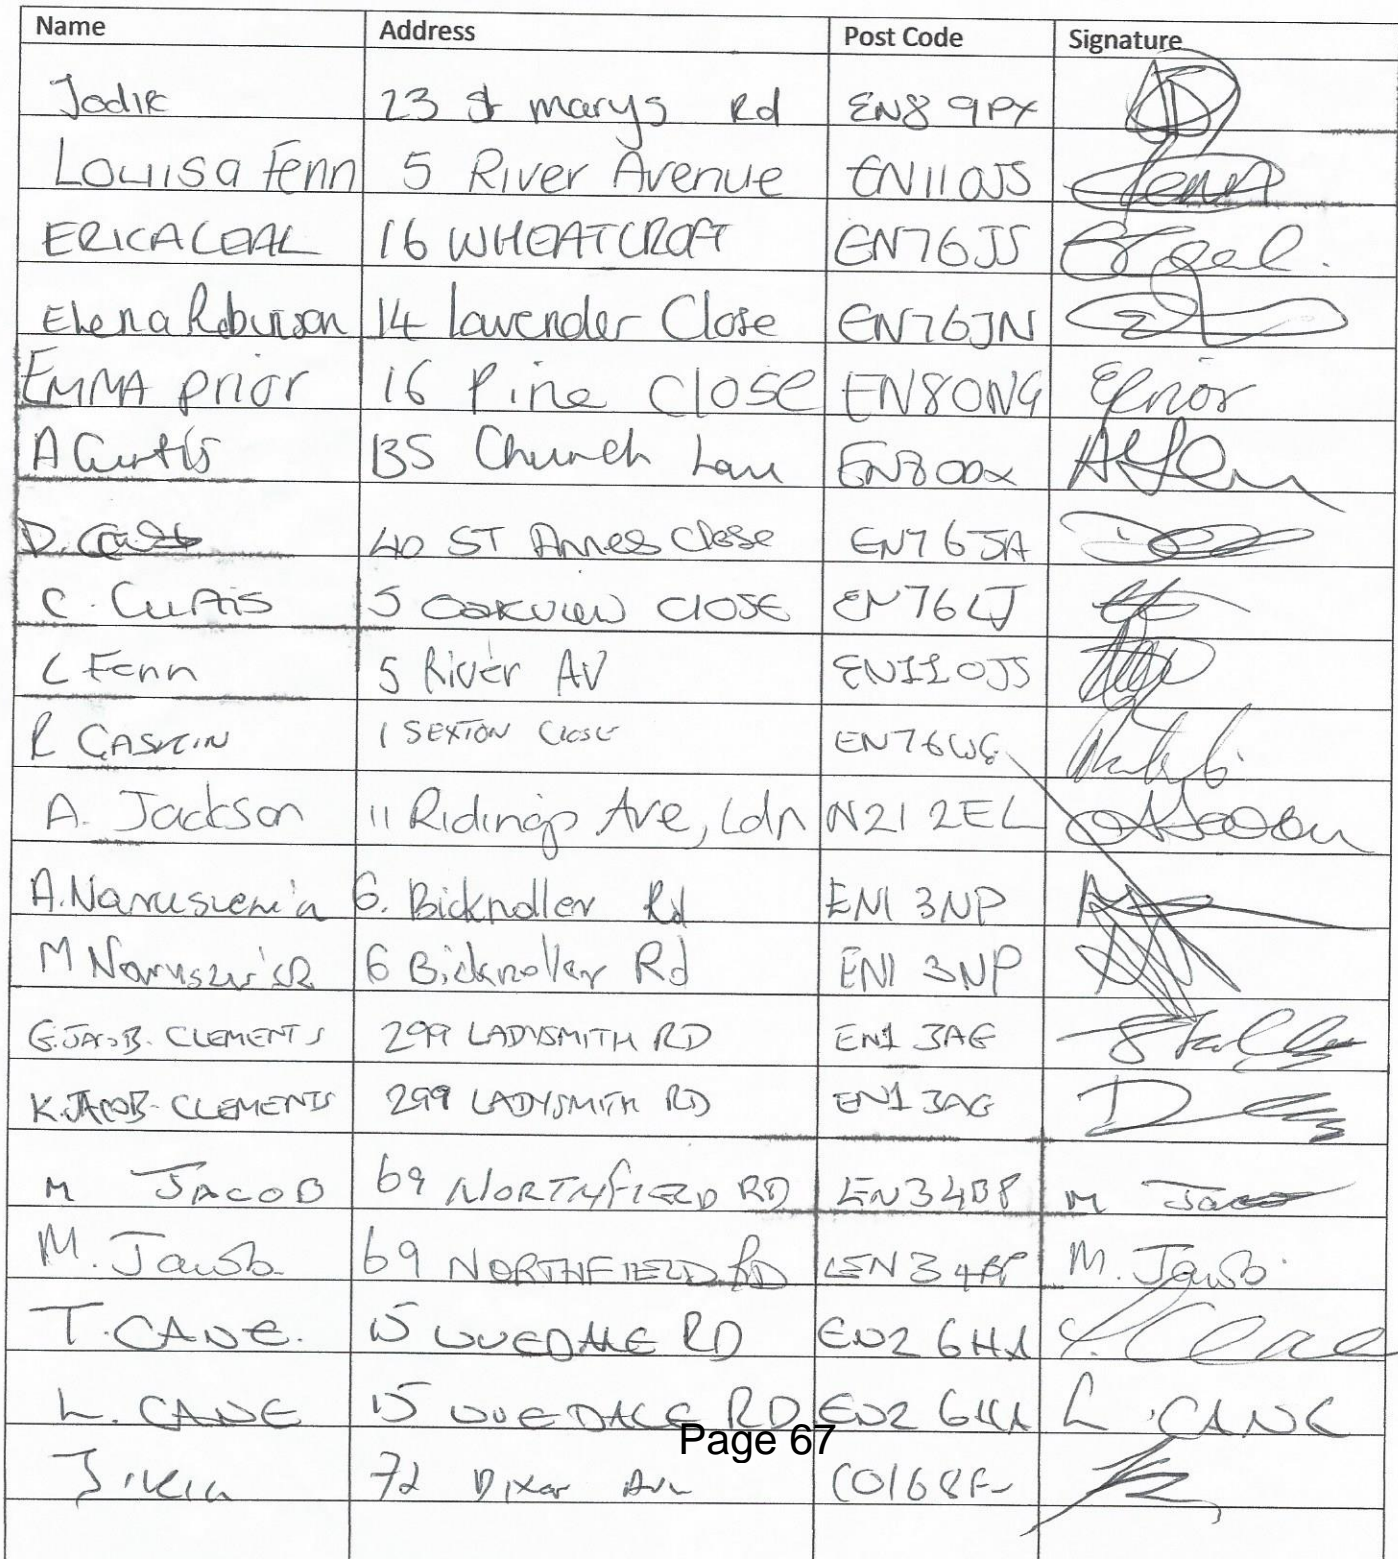 Name Address Post Code Signature
Jodie 23 St marys Rd EN8 9PX
Louisa Fenn 5 River Avenue EN11 0JS Fenn
ERICA LEAL 16 WHEATCROFT EN76JS
Elena Robinson 14 lavender Close EN76JN
EMMA prior 16 Pine Close EN80NG EPrior
A Curtis 135 Church Lane EN8 0DX
D. 40 ST Annes Close EN7 6JA
C. Curtis 5 OAKVIEW CLOSE EN76LJ
L Fenn 5 River AV EN11 0JS
R GASKIN 1 SEXTON CLOSE EN76WG
A. Jackson 11 Ridings Ave, Ldn N21 2EL
A. 6. Bicknoller Rd EN1 3NP
M 6 Bicknoller Rd EN1 3NP
G. JACOB-CLEMENTS 299 LADYSMITH RD EN1 3AG
K. JACOB-CLEMENTS 299 LADYSMITH RD EN1 3AG
M JACOB 69 NORTHFIELD RD EN3 4BP M Jacob
M. Jacob 69 NORTHFIELD RD EN3 4BP M. Jacob
T. CANE. 15 UVEDALE RD EN2 6HA
L. CANE 15 UVEDALE RD EN2 6HA L. CANE
72 Dixon Ave
Page 67